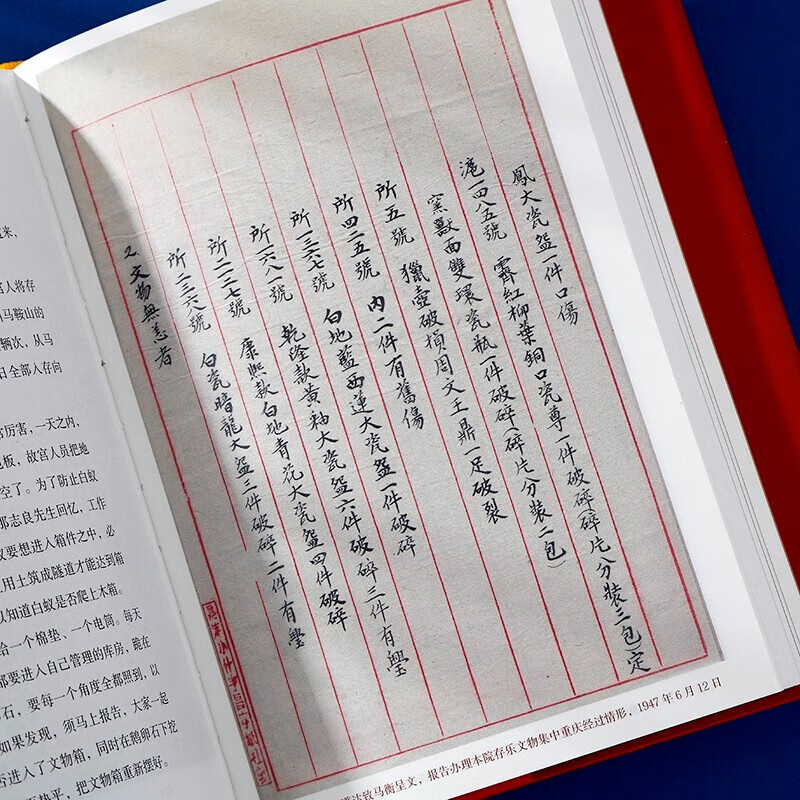 鳳大瓷盌一件口傷
滬一四八五號 霽紅柳葉銅口瓷尊一件破碎(碎片分裝三包)定
窯獸面雙環瓷瓶一件破碎(碎片分裝二包)
所五號 獵壺破損周文王鼎一足破裂
所四二五號 內二件有舊傷
所一三六七號 白地藍西蓮大瓷盌一件破碎
所一六八一號 乾隆款黃釉大瓷盌六件破碎三件有璺
所二一二七號 康熙款白地青花大瓷盌四件破碎
所二三六八號 白瓷暗龍大盌三件破碎二件有璺
2.文物無恙者
達致马衡呈文，报告办理本院存乐文物集中重庆经过情形，1947年6月12日
来，
宫人将存
马鞍山的
辆次，从马
日全部人存向
官厉害，一天之内，
地板，故宫人员把地
空了。为了防止白蚁
那志良先生回忆，工作
议要想进入箱件之中，必
用土筑成隧道才能达到箱
以知道白蚁是否爬上木箱。
给一个棉垫、一个电筒。每天
都要进入自己管理的库房，跪在
石，要每一个角度全都照到，以
如果发现，须马上报告，大家一起
否进入了文物箱，同时在鹅卵石下挖
平，把文物箱重新摆好。